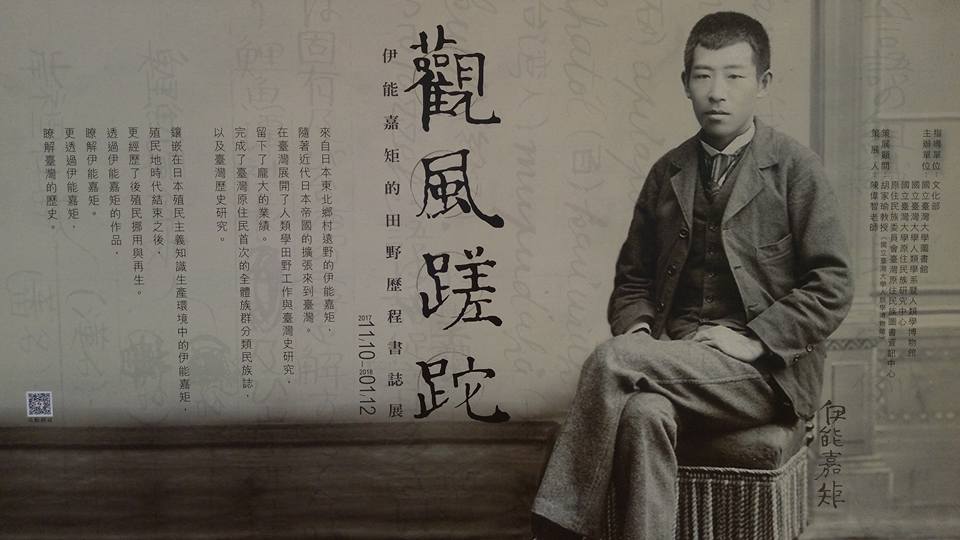 指導單位：文化部
主辦單位：國立臺灣大學圖書館
國立臺灣大學人類學系暨人類學博物館
國立臺灣大學原住民族研究中心
原住民族委員會臺灣原住民族圖書資訊中心
策展顧問：胡家瑜教授
策展人：陳偉智老師
伊能嘉矩
觀風蹉跎
伊能嘉矩的田野歷程書誌展
2017
11/10—2018
01/12
來自日本東北鄉村遠野的伊能嘉矩，
隨著近代日本帝國的擴張來到臺灣。
在臺灣展開了人類學田野工作與臺灣史研究，
留下了龐大的業績。
完成了臺灣原住民首次的全體族群分類民族誌，
以及臺灣歷史研究。
鑲嵌在日本殖民主義知識生產環境中的伊能嘉矩，
殖民地時代結束之後，
更經歷了後殖民挪用與再生。
透過伊能嘉矩的作品，
瞭解伊能嘉矩。
更透過伊能嘉矩，
瞭解臺灣的歷史。